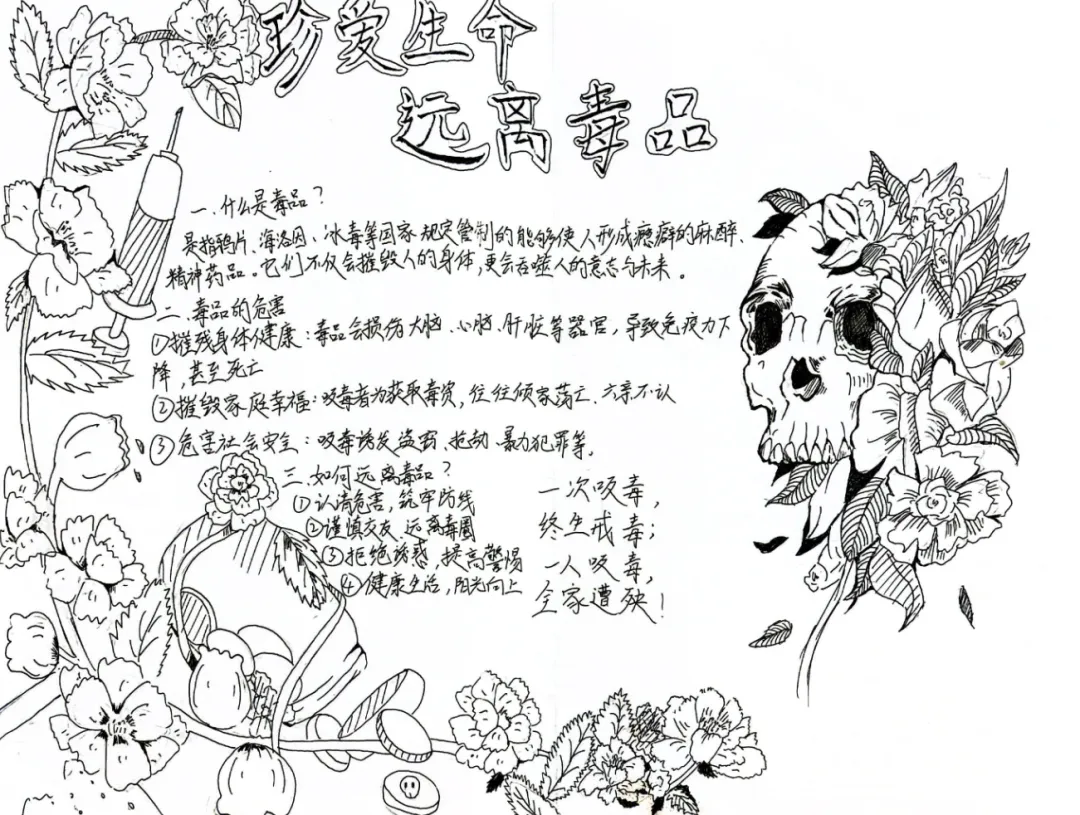 珍爱生命
远离毒品
一.什么是毒品？
是指鸦片、海洛因、冰毒等国家规定管制的能够使人形成瘾癖的麻醉、
精神药品。它们不仅会摧毁人的身体，更会吞噬人的意志与未来。
二.毒品的危害
①摧残身体健康：毒品会损伤大脑、心脑、肝脏等器官，导致免疫力下
降，甚至死亡
②摧毁家庭幸福：吸毒者为获取毒资，往往倾家荡亡、六亲不认
③危害社会安全：吸毒诱发盗窃、抢劫、暴力犯罪等。
三.如何远离毒品？
①认清危害，筑牢防线
②谨慎交友，远离毒圈
③拒绝诱惑，提高警惕
④健康生活，阳光向上
一次吸毒，
终生戒毒；
一人吸毒，
全家遭殃！